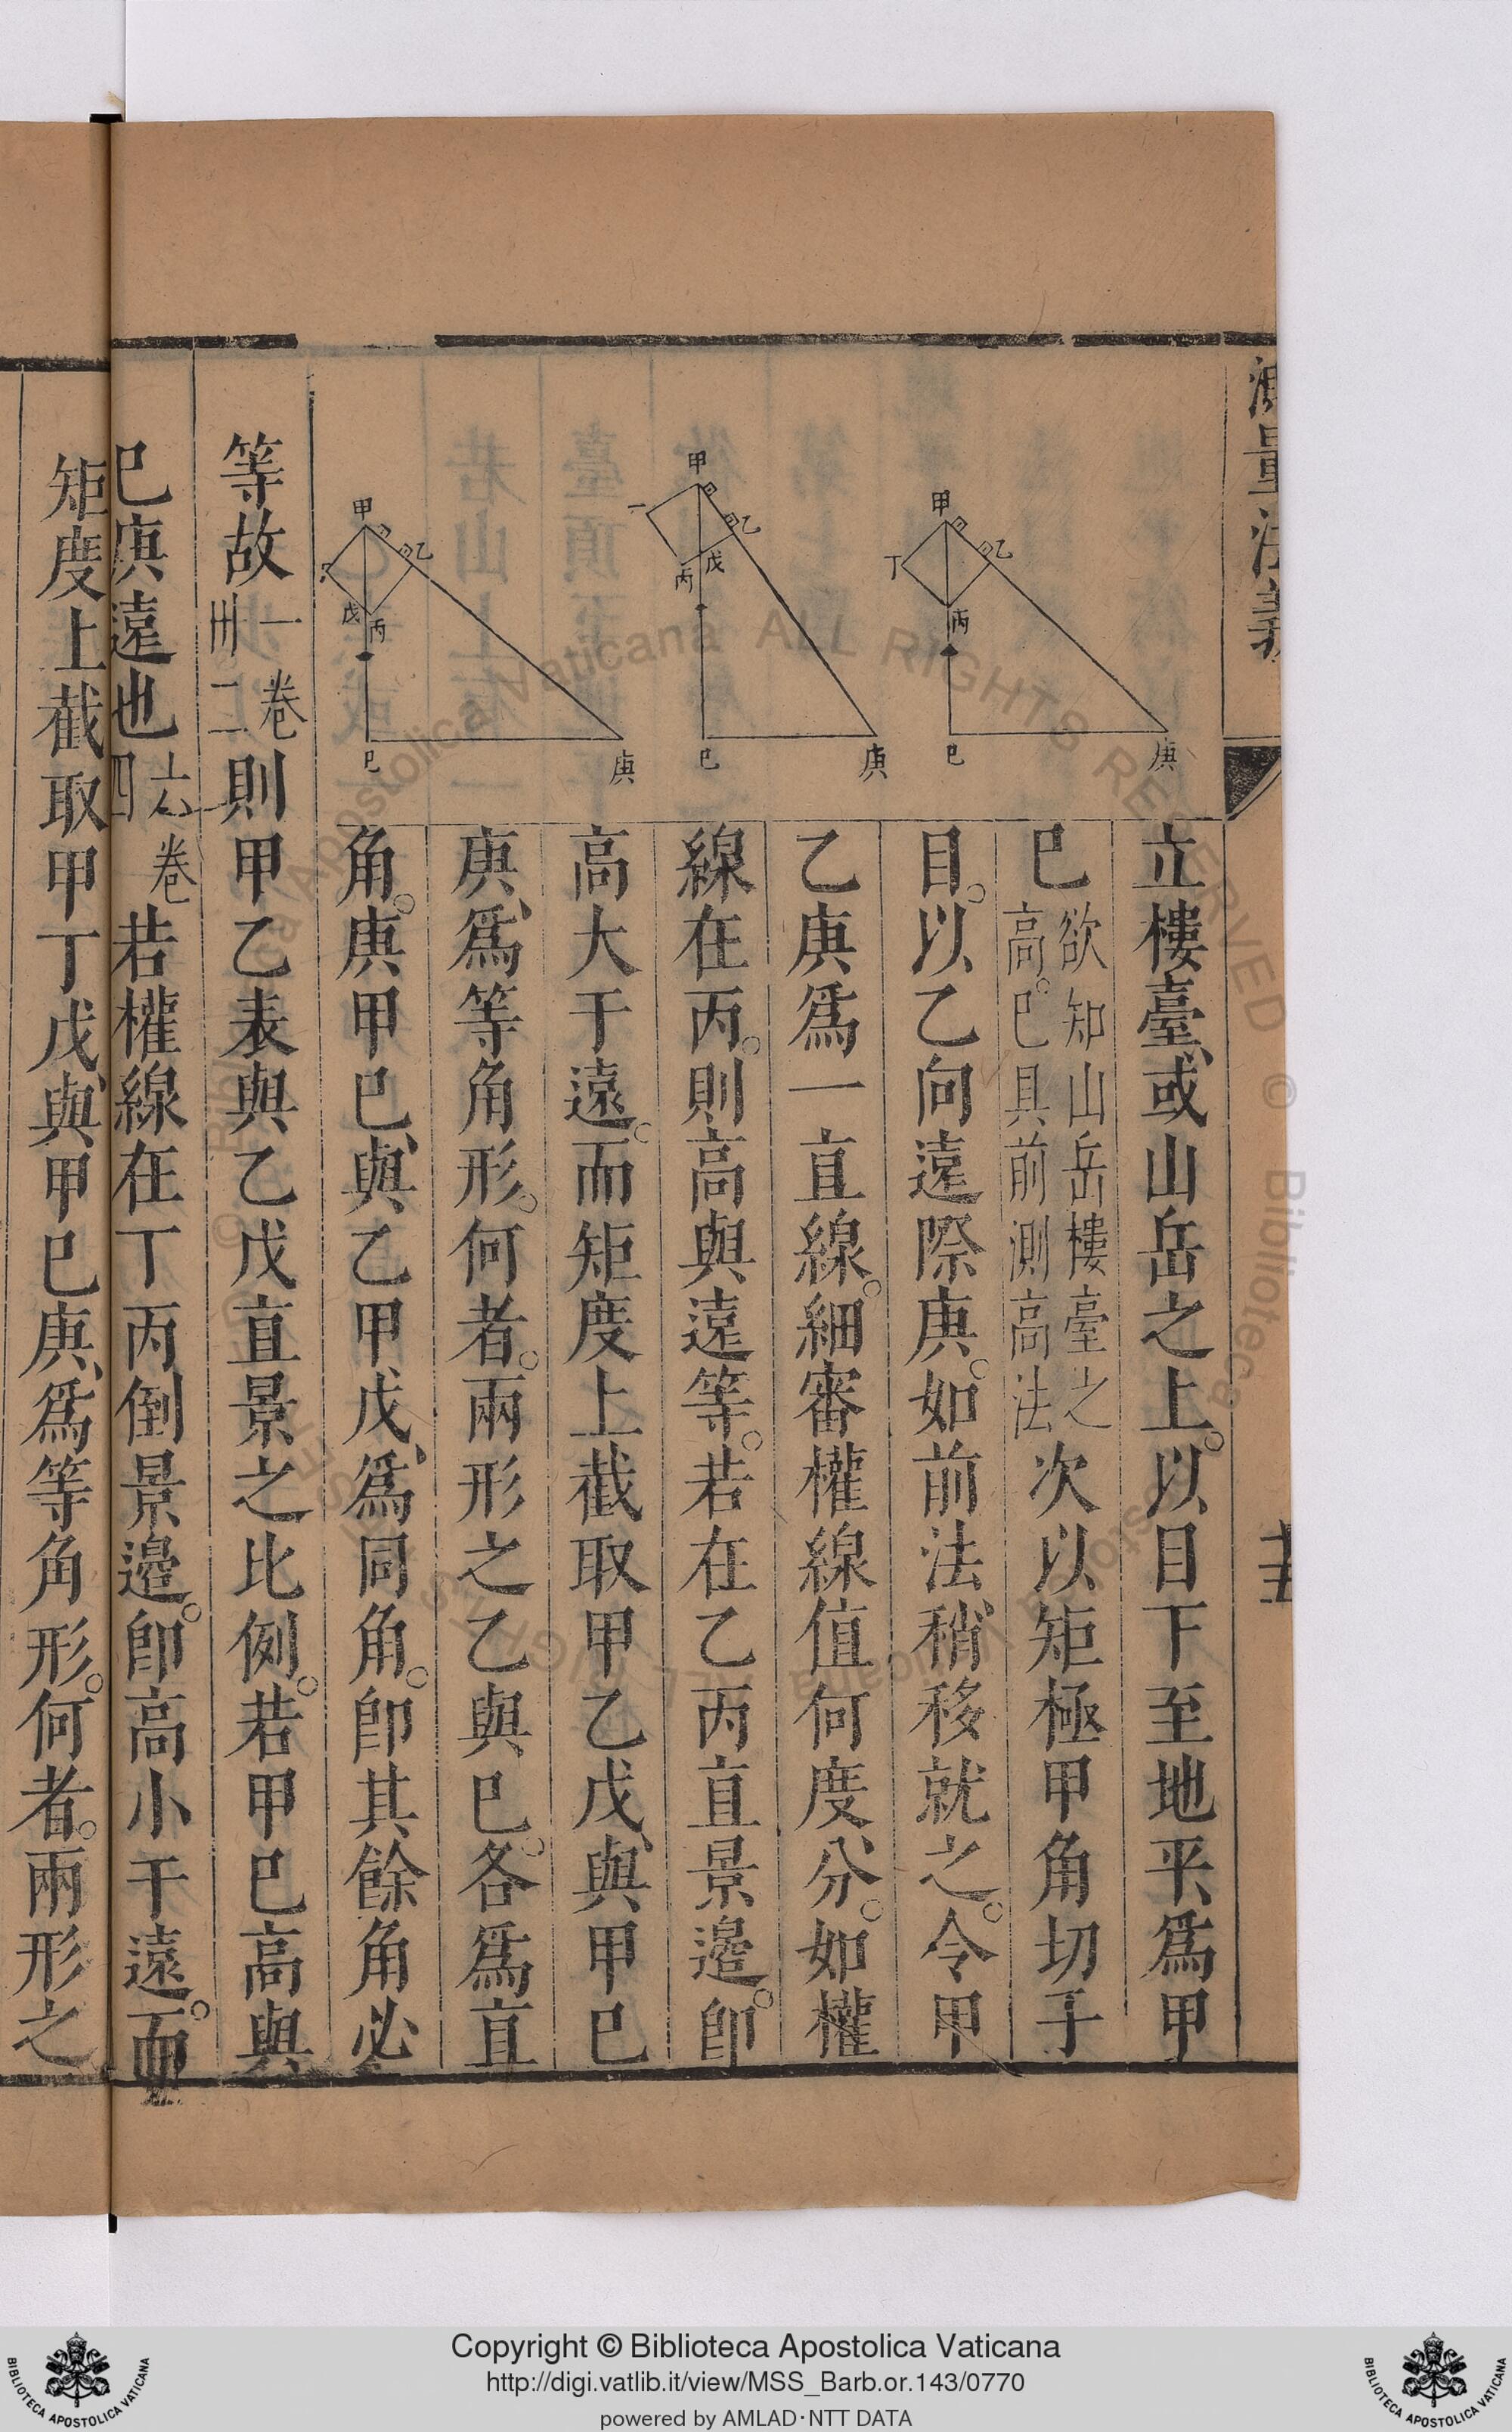 測量法義
立樓臺、或山岳之上。以目下至地平、爲甲
巳欲知山岳樓臺之高。巳具前測高法次以矩極甲角切于
目。以乙向遠際庚。如前法、稍移就之。令甲
乙庚爲一直線。細審權線值何度分。如權
線在丙。則高與遠等。若在乙丙直景邊。卽
高大于遠。而矩度上截取甲乙戊、與甲巳
庚、爲等角形。何者。兩形之乙與巳。各爲直
角。庚甲巳、與乙甲戊、爲同角。卽其餘角必
等故一卷卅二則甲乙表與乙戊直景之比例。若甲巳高與
巳庚遠也六卷四若權線在丁丙倒景邊。卽高小于遠。而
矩度上截取甲丁戊、與甲巳庚、爲等角形。何者。兩形之
甲
乙
丁
丙
巳
庚
甲
乙
戊
丙
巳
庚
甲
乙
戊
丙
巳
庚
Copyright © Biblioteca Apostolica Vaticana
http://digi.vatlib.it/view/MSS_Barb.or.143/0770
powered by AMLAD·NTT DATA
BIBLIOTECA APOSTOLICA VATICANA
BIBLIOTECA APOSTOLICA VATICANA